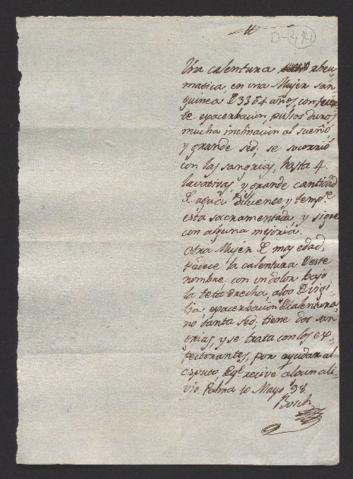 D-421
Una calentura reu
matica, en una Mujer san
guinea D 33 a 34 años, con fuer
te exacerbacion, pulsos duros,
mucha inclinacion al sueño
y grande sed, se socorrió
con las sangrias, hasta 4
lavativas, y grande cantidad
D agua diluente y temp.
esta sacramentada, y sigue
con alguna mejoria.
Otra Mujer D mas edad,
padece la calentura D este
nombre con un dolor bajo
la teta drecha, algo D vigi
lia, exacerbacion D calentura,
no tanta sed, tiene dos san
grias, y se trata con los ex
pectorantes, por ayudar al
esputo D ql recive algun ali
vio. Palma 10 Mayo 98.
Bosch